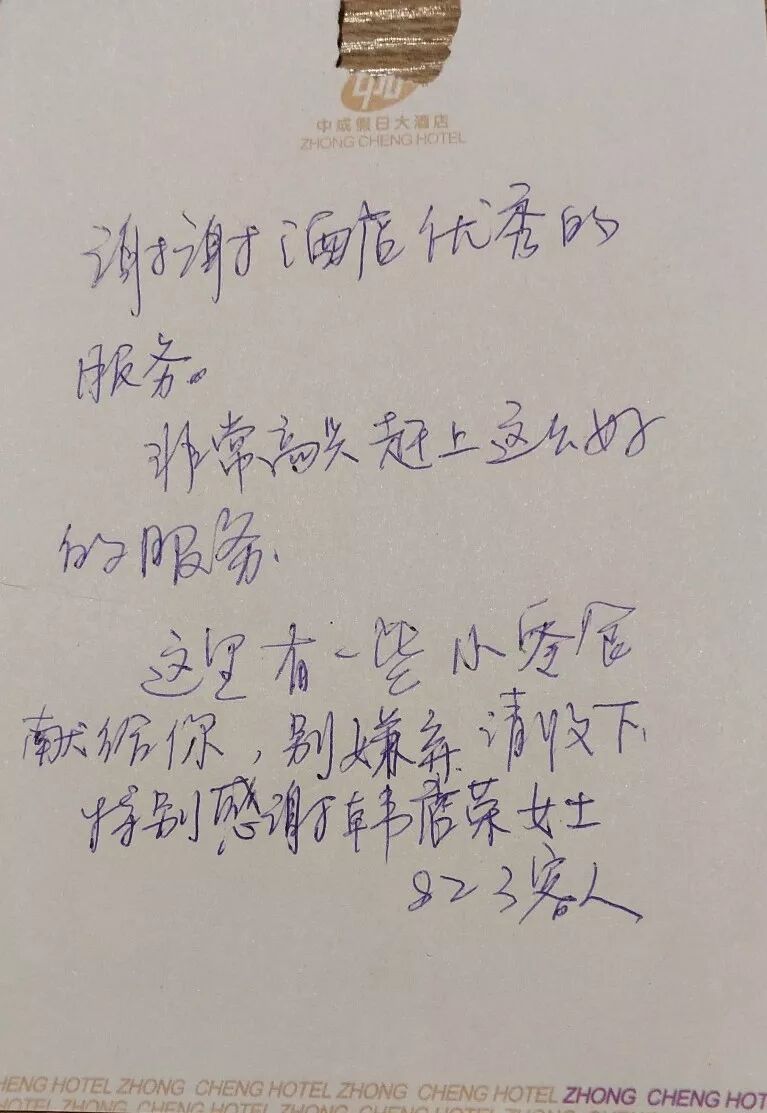 中成假日大酒店
ZHONG CHENG HOTEL
谢谢酒店优秀的
服务。
非常高兴赶上这么好
的服务.
这里有一些小零食
献给你,别嫌弃请收下.
特别感谢韩启荣女士
823客人
HENG HOTEL ZHONG CHENG HOTEL ZHONG CHENG HOTEL ZHONG CHENG HOT